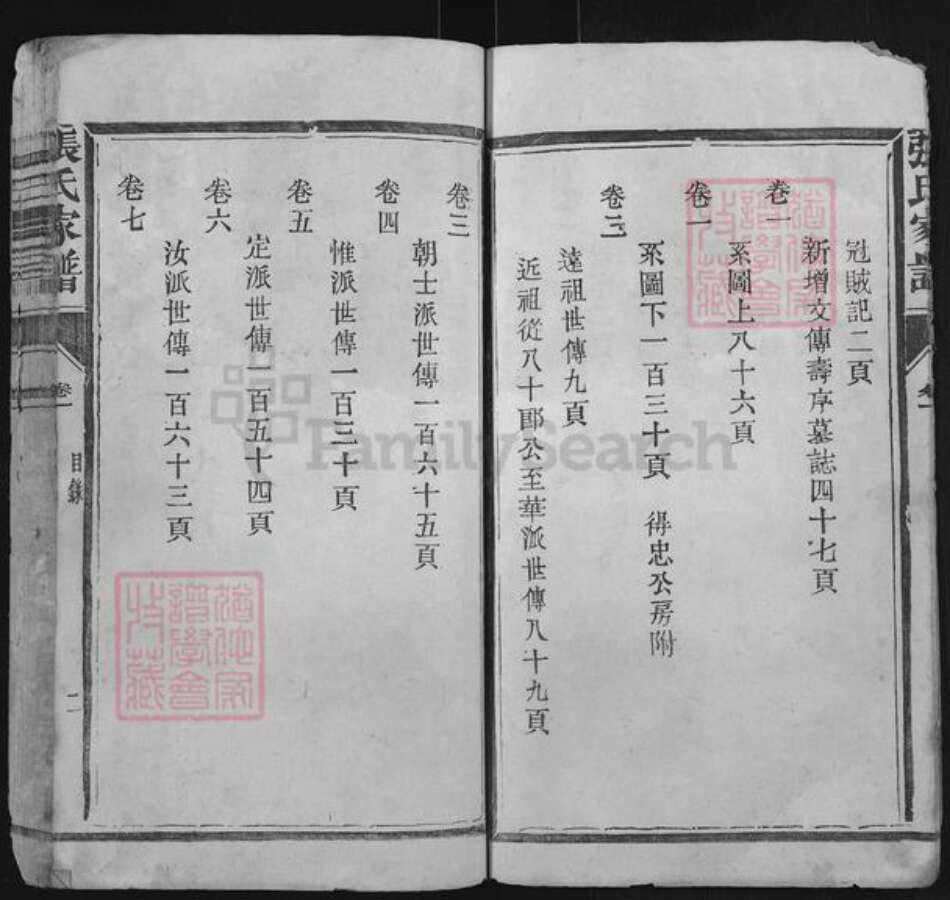 張氏家譜
卷一
寇賊記二頁
新增文傳壽序墓誌四十七頁
卷一
系圖上八十六頁
卷一
系圖下一百三十頁 得忠公房附
卷二
遠祖世傳九頁
近祖從八十郎公至華派世傳八十九頁
卷三
朝士派世傳一百六十五頁
卷四
惟派世傳一百三十頁
卷五
定派世傳一百五十四頁
卷六
汝派世傳一百六十三頁
卷七
張氏家譜
卷一
目錄
二
FamilySearch